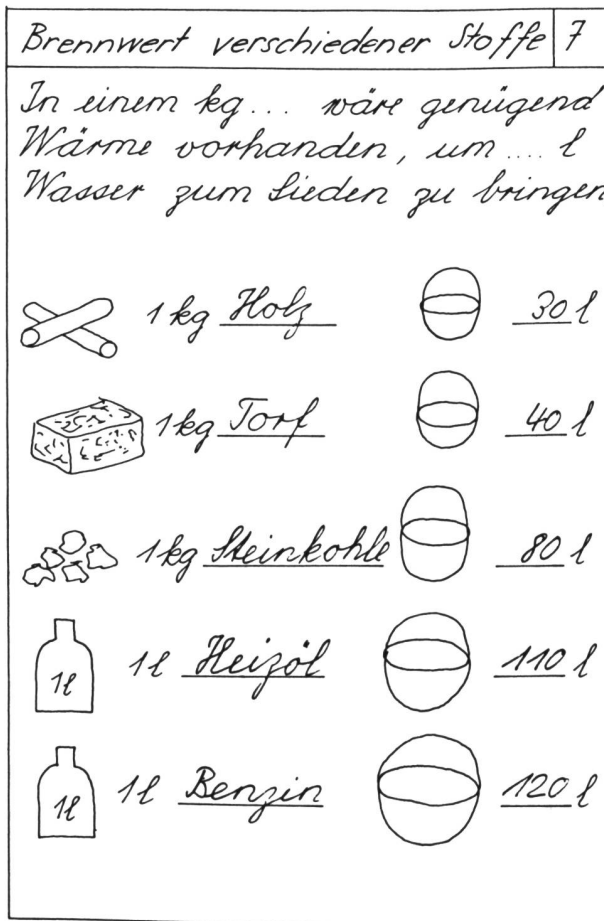 Brennwert verschiedener Stoffe 7
In einem kg... wäre genügend
Wärme vorhanden, um .... l
Wasser zum Sieden zu bringen
1 kg Holz 30 l
1 kg Torf 40 l
1 kg Steinkohle 80 l
1l 1l Heizöl 110 l
1l 1l Benzin 120 l